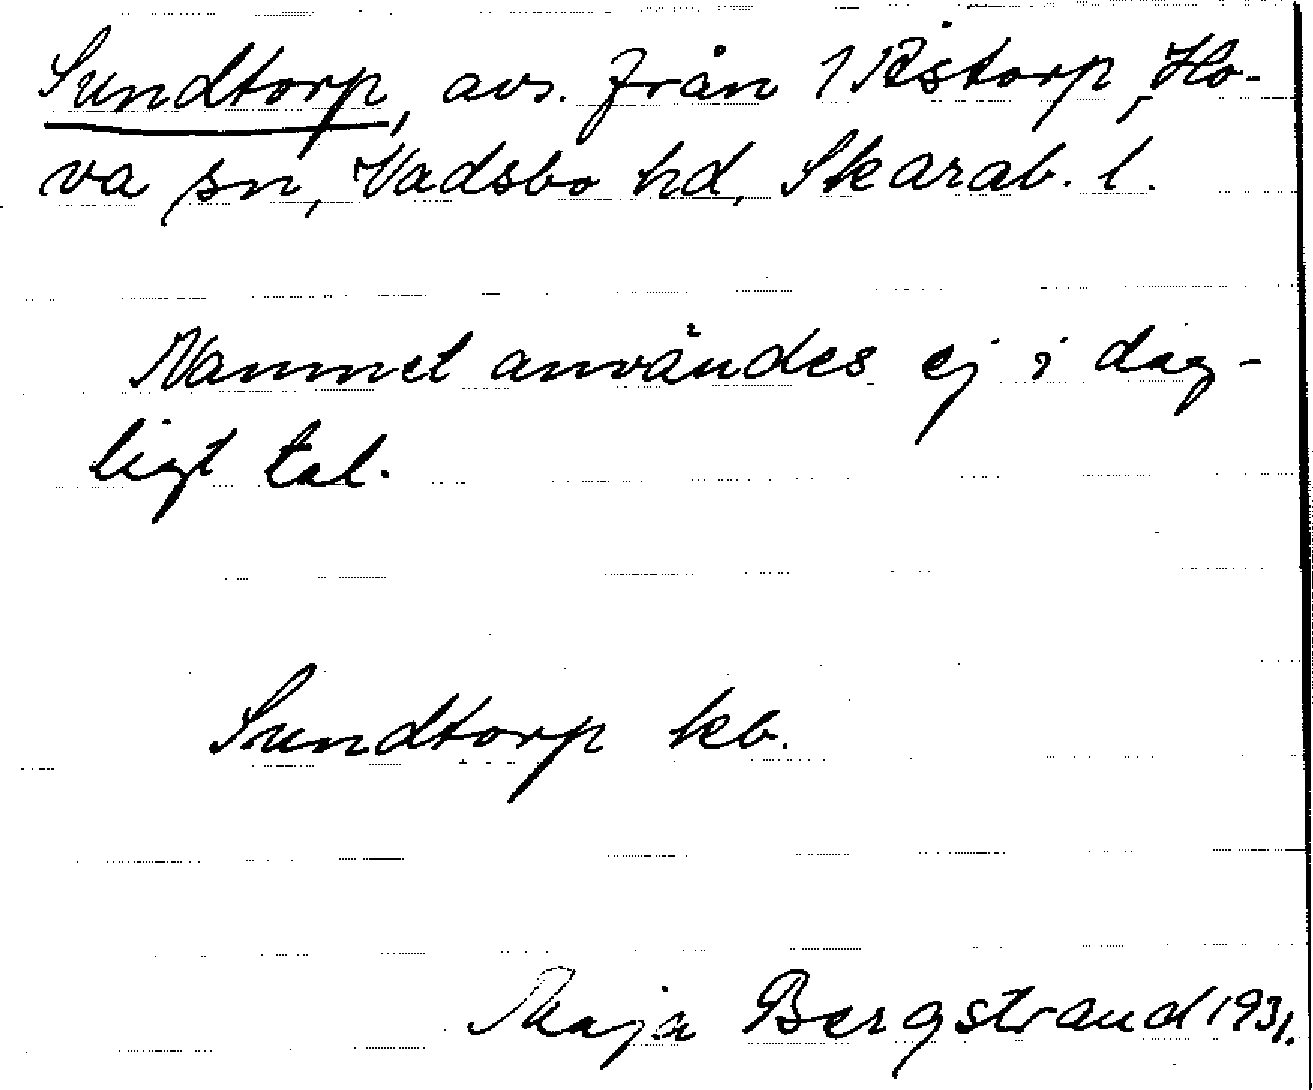 Sundtorp, avs. från 1 Råstorp, Ho-
va sn, Vadsbo hd, Skarab. l.
Namnet användes ej i dag-
ligt tal.
Sundtorp kb.
Maja Bergstrand 1931.